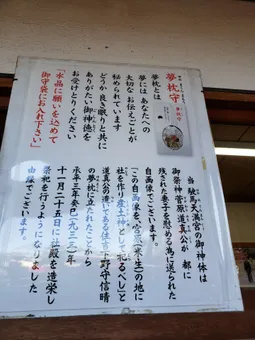 夢枕守
夢枕とは
夢には あなたへの
大切な お伝えごとが
秘められています
どうか 良き眠りと共に
ありがたい御神徳を
お受けとりください
「水晶に願いを込めて
御守袋にお入れ下さい」
当 駿馬天満宮の御神体は
御祭神 菅原道真公が 都に
残された妻子を慰める為に送られた
自画像でございます。
「この自画像を、宮原(室生)の地に
社を作り産土神として祀るべし」と
道真公の遣いである住吉下野守信晴
の夢枕に立たれたことから
承平三年癸巳(九三三)年
十一月二十五日に社殿を造営し
祭祀を行うようになりました
由縁でございます。